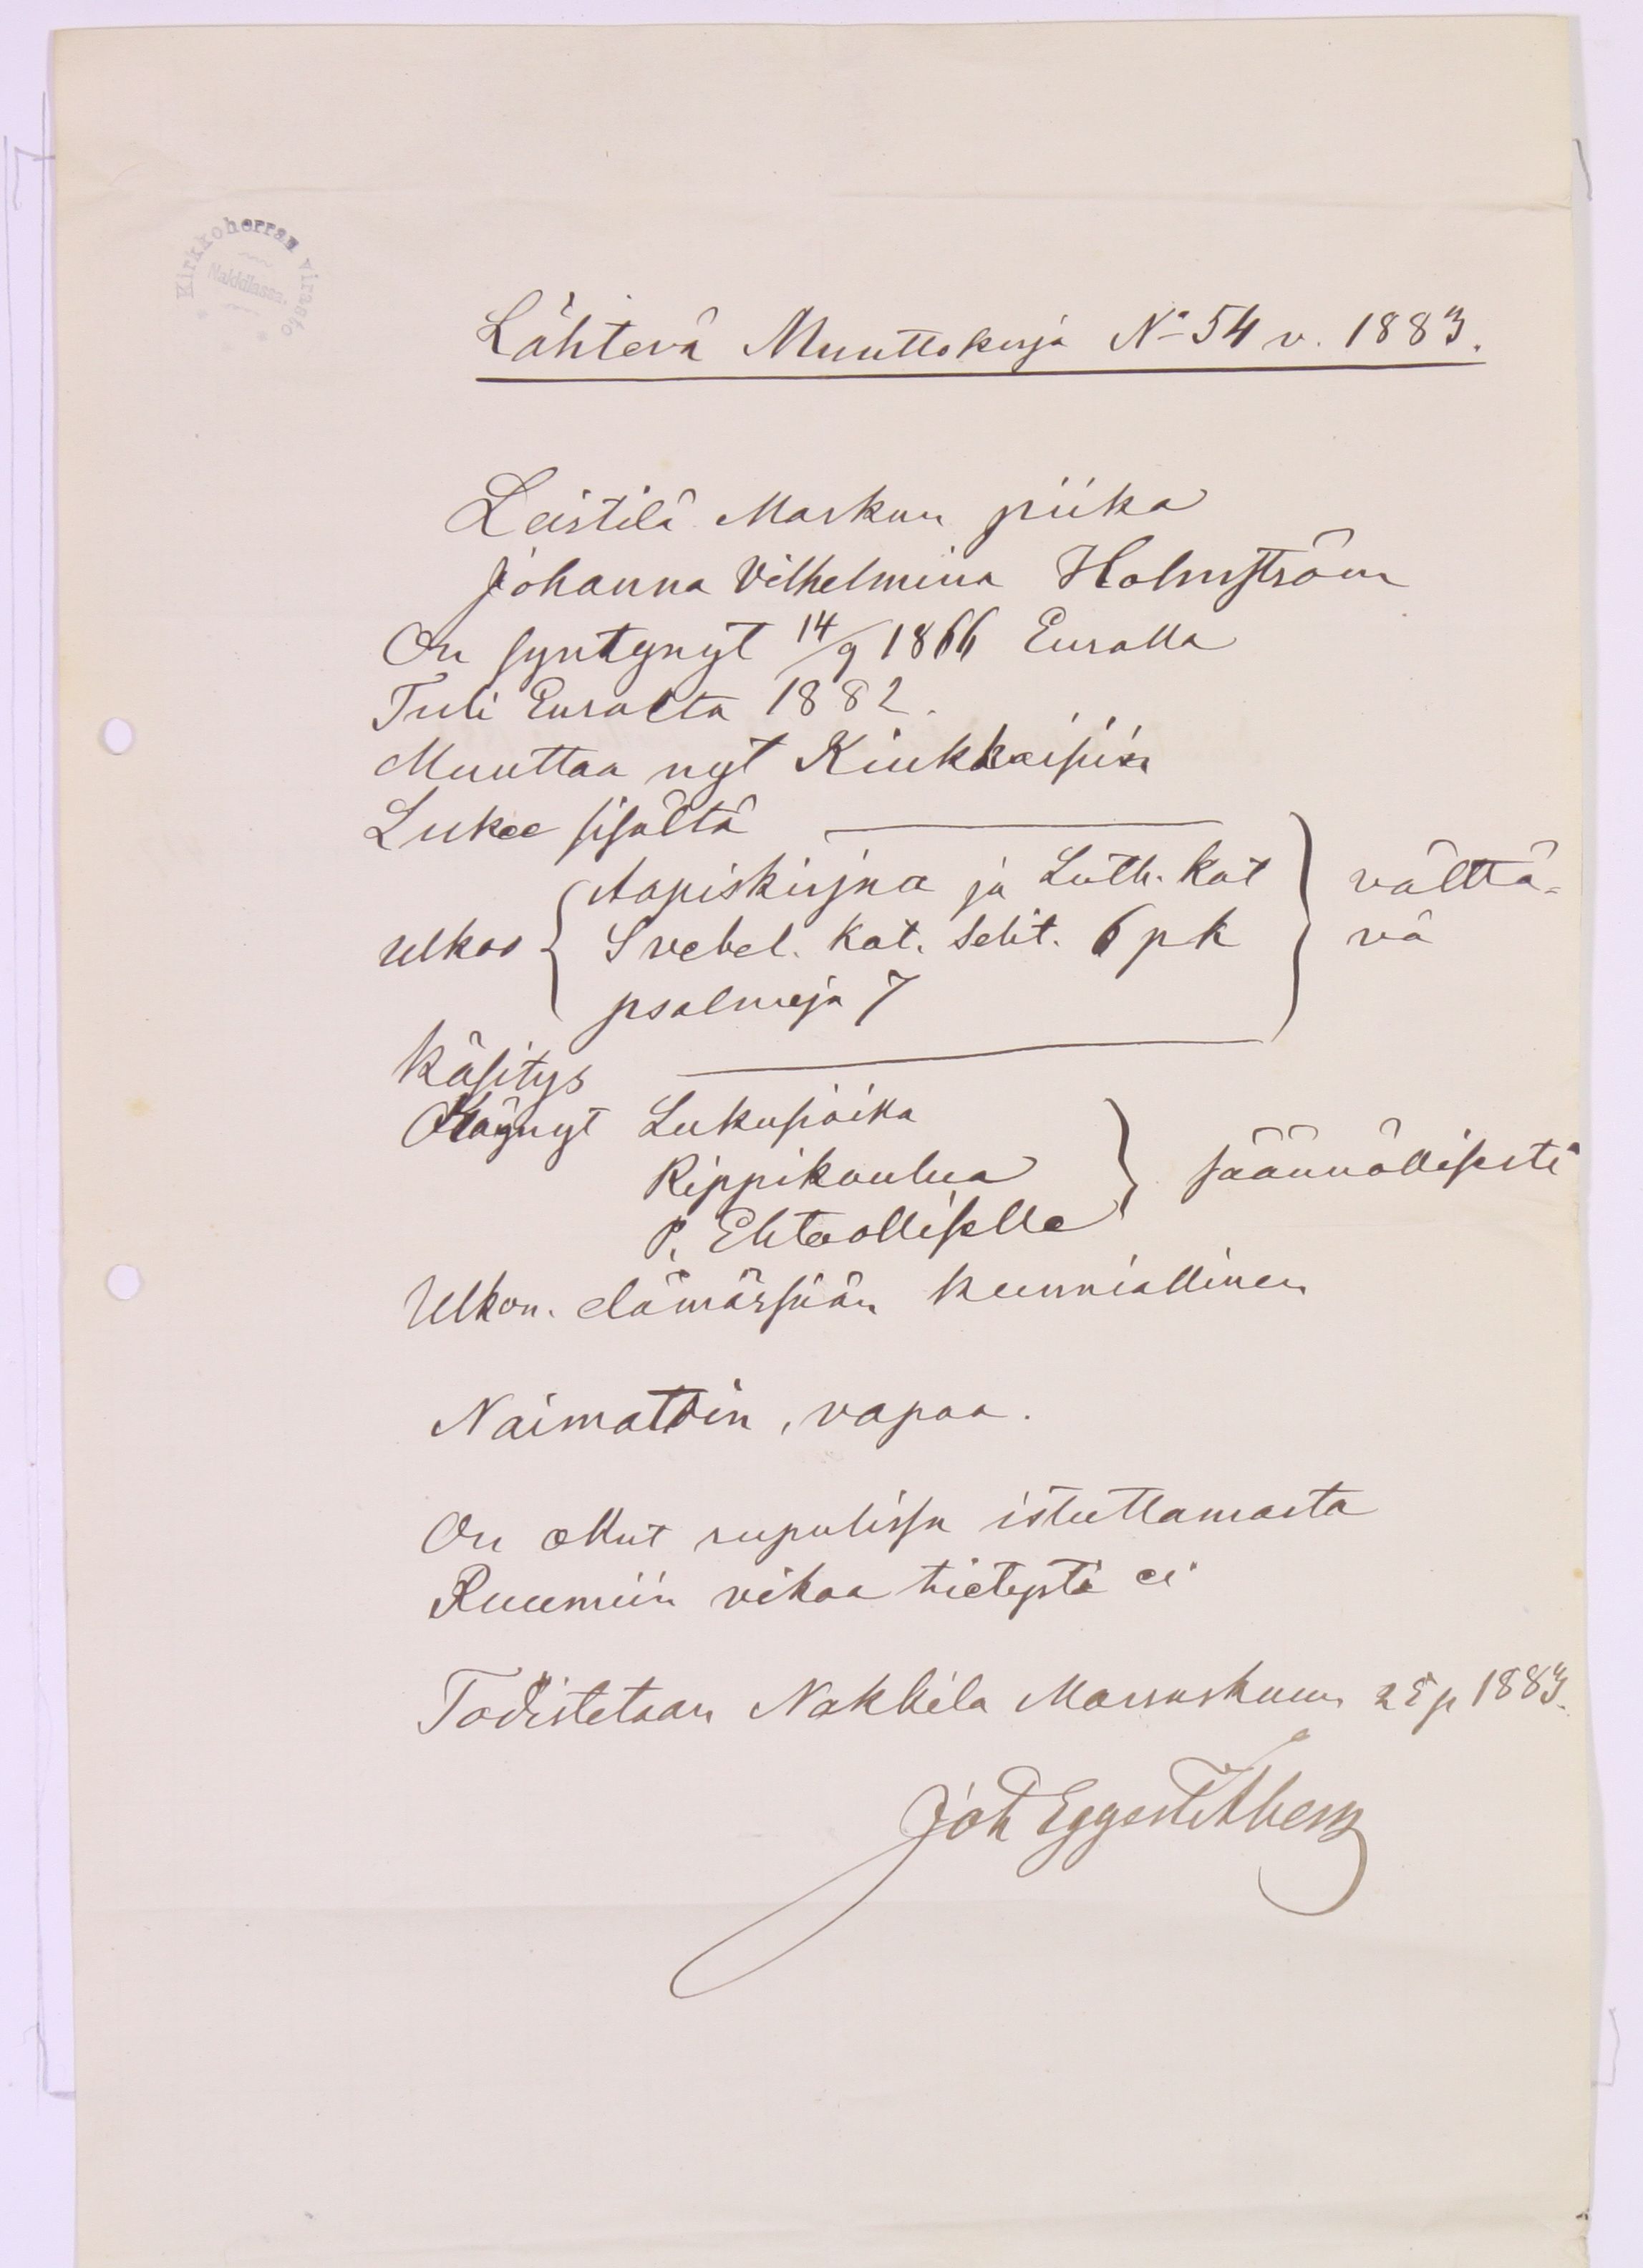 Kirkkoherran virasto
Nakkilassa.
Lähtevä Muuttokirja No 54 v. 1883.
Leistilä Markun piika
Johanna Vilhelmina Holmström
On syntynyt 14/9 1866 Euralla
Tuli Euralta 1882.
Muuttaa nyt Kiukkaisiin
Lukee sisältä
Aapiskirjaa ja Luth. Kat
ulkoo Svebel. Kat. Selit. 6 p k
psalmeja 7
välttä-
vä
Käsitys
Käynyt Lukusioilla
Rippikoulua
P. Ehtoollisella
säännöllisesti
Ulkon. elämässään kunniallinen
Naimatoin, vapaa.
On ollut rupulissa istuttamasta
Ruumiin vikaa tietystä ei
Todistetaan Nakkila Marraskuun p 1883.
Joh